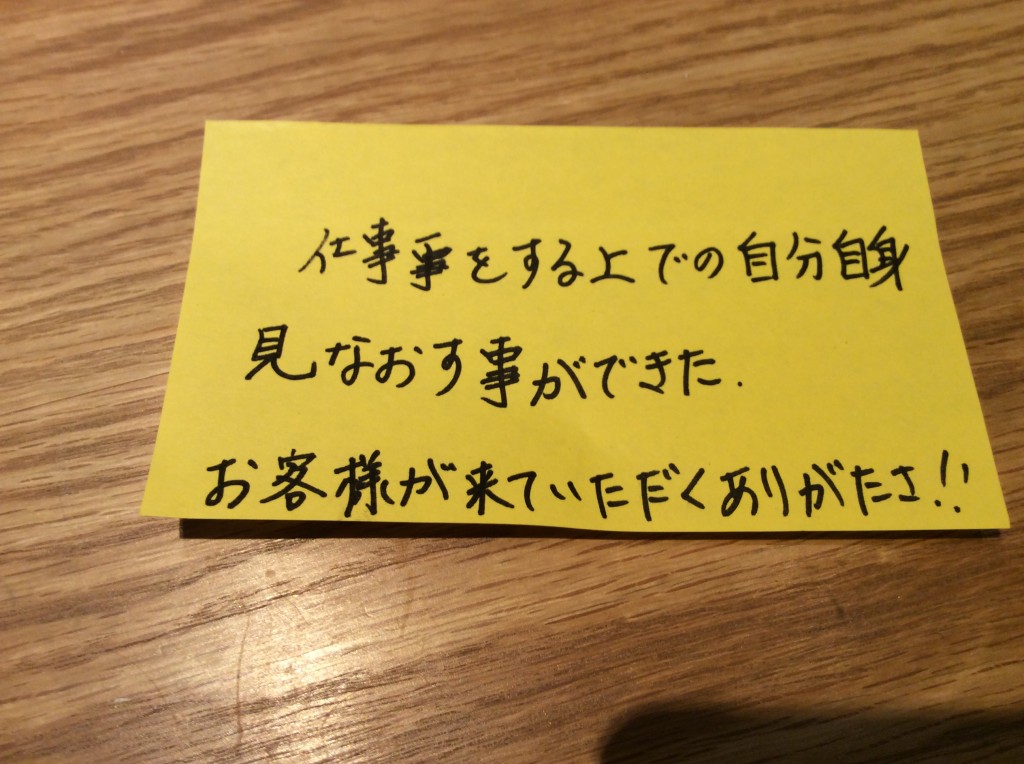 仕事事をする上での自分自身
見なおす事ができた.
お客様が来ていただくありがたさ!!